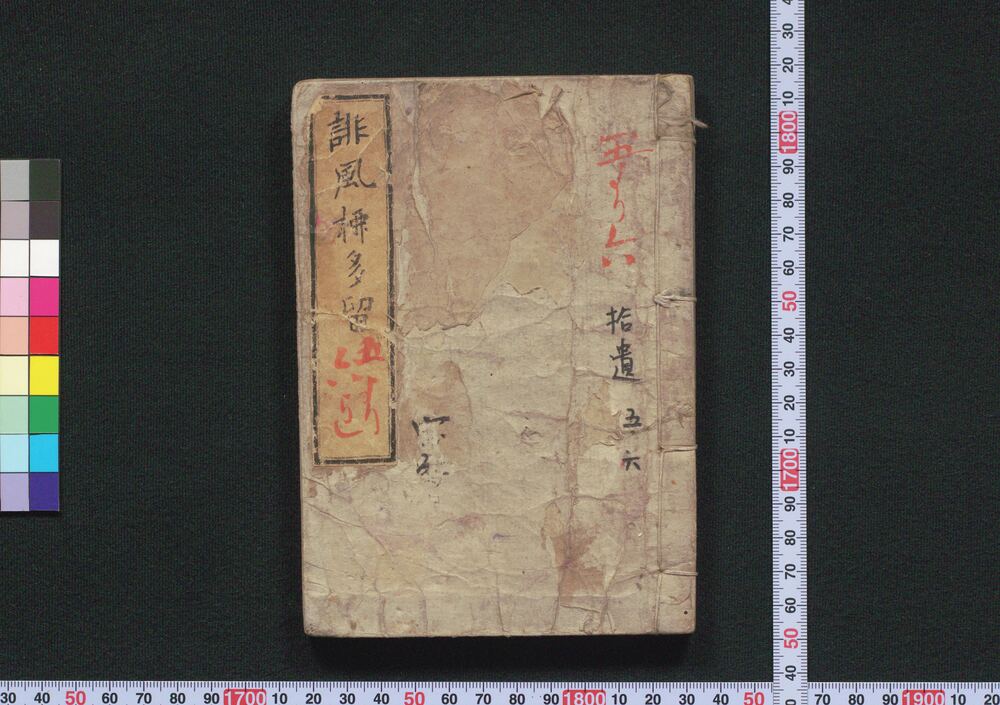 五より六
拾遺 五、六
誹風柳多留
五より
六迄
30 40 50 60 70 80 90 1700 10 20 30 40 50 60 70 80 90 1800 10 20 30 40 50 60 70 80 90 1900 10 20
30
20
10
1800
90
80
70
60
50
40
30
20
10
1700
90
80
70
60
50
40